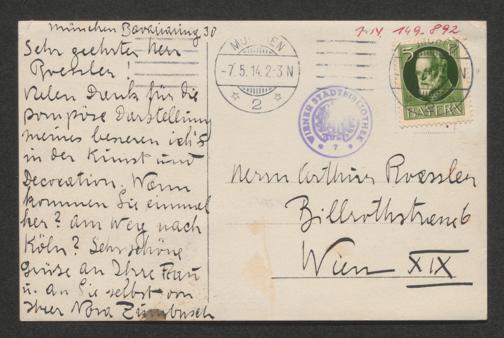 München Bavariaring 30
Sehr geehrter Herr
Roessler!
Vielen Dank für die
pompöse Darstellung
meines besseren ich's
in der Kunst und
Decoration. Wann
kommen Sie einmal
her? am Weg nach
Köln? Sehr schöne
Grüße an Ihre Frau
u. an Sie selbst von
Ihrer Nora Zumbusch
MÜNCHEN
-7.5.14.2-3N
2
I.N. 149.892
WIENER STADTBIBLIOTHEK
7
5
BAYERN
Herrn Arthur Roessler
Billrothstrasse 6
Wien XIX